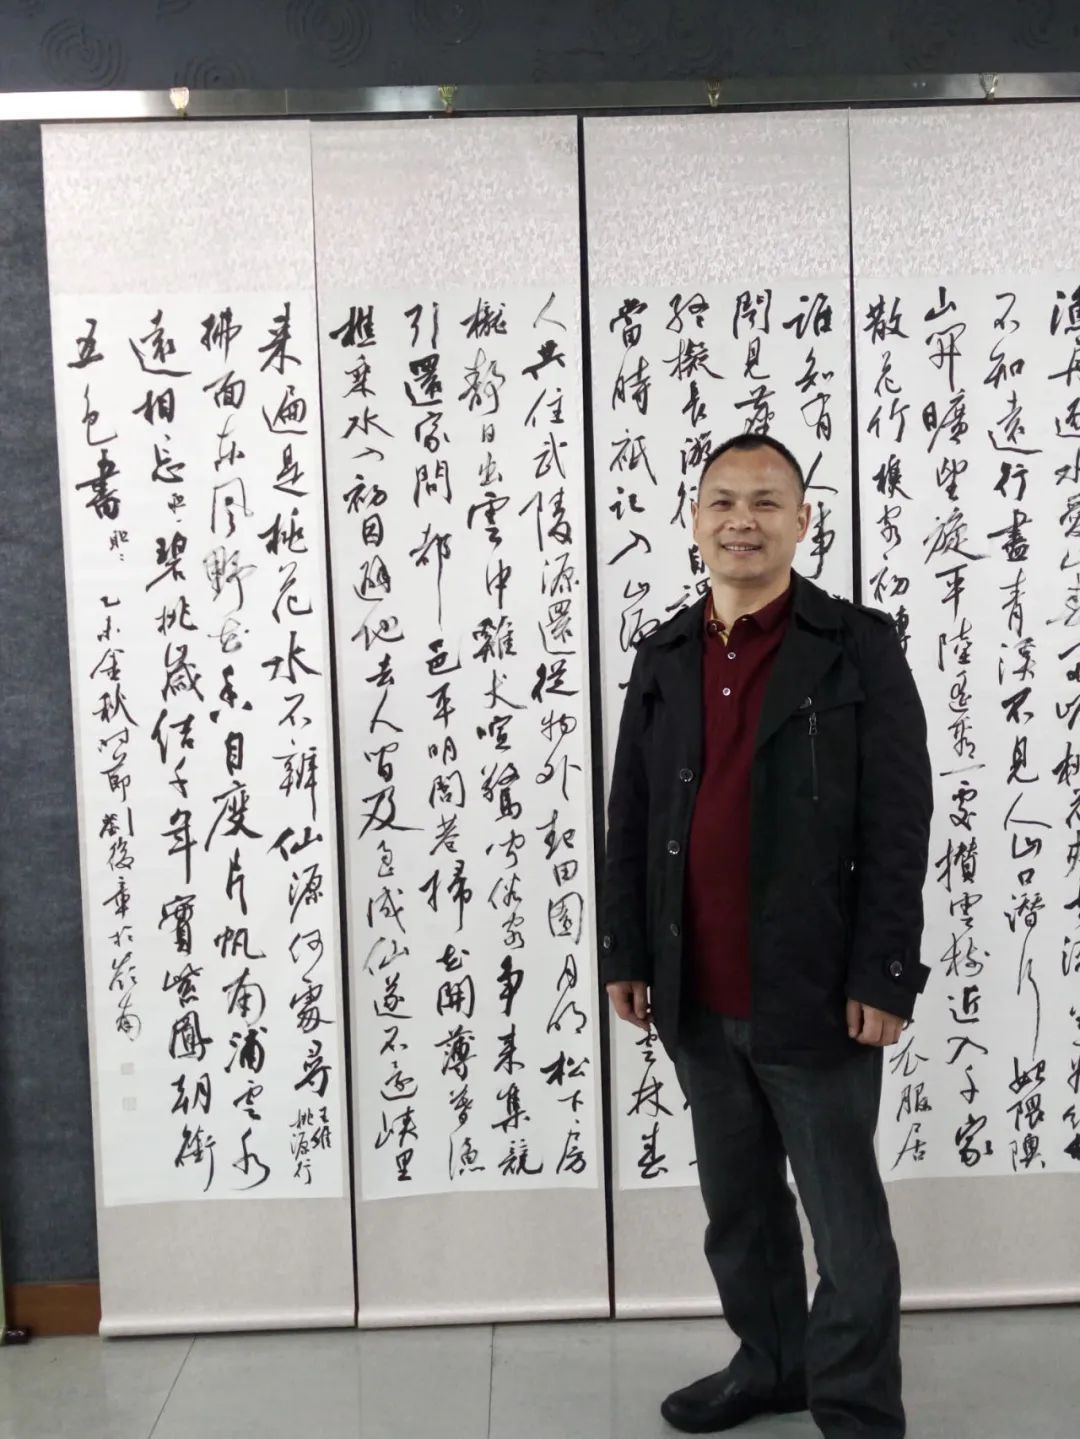 不知遠行盡青溪不見人山口潛行始隈隩
山開曠望旋平陸遙看一處攢雲樹近入千家
散花竹樵客初傳
衣服居
誰知有人事
聞見
終擬長游衍自謂
當時秖記入山深
雲林春
人共住武陵源還從物外起田園月明松下房
櫳靜日出雲中雞犬喧驚聞俗客爭來集競
引還家問都邑平明閭巷掃花開薄暮漁
樵乘水入初因避地去人間及至成仙遂不還峽里
來遍是桃花水不辨仙源何處尋
王維桃源行
拂面東風野花香目度片帆南浦雲水
遠相忘
碧桃歲結千年實紫鳳朝銜
五色書
乙未金秋時節劉後章於嶺南